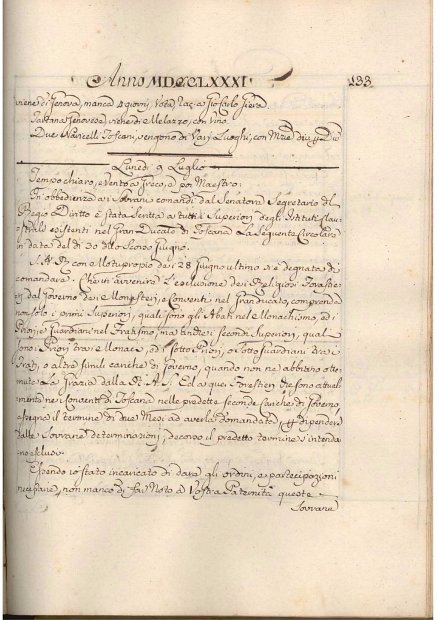 Anno MDCCLXXXI. 133
viene di Genova, manca 4 giorni, vota, Racc.a Gio: Carlo
Tartana Genovese, viene di Melazzo, con vino.
Due Navicelli Toscani, vengono di Varj Luoghi, con
Lunedì 9 Luglio
Tempo chiaro, e Vento a Greco, e poi Maestro:
In obbedienza ai Sovrani comandi dal Senatore Segretario del
Regio Diritto è stata scritta a tutti i Superiori degli Istituti Clau-
strali esistenti nel Gran Ducato di Toscana la seguente Circolare
in data del dì 30 dello scorso Giugno.
S. A. R. con Motuproprio dei 28 Giugno ultimo si è degnata di
comandare: Che in avvenire l'esclusione dei Religiosi Forestie-
ri dal Governo dei Monasterj, e Conventi nel Granducato, comprenda
non solo i primi Superiori, quali sono gli Abati nel Monachismo, ed i
Priori, e Guardiani nel Fratismo, ma anche i secondi Superiori, quali
sono i Priori tra i Monaci, ed i Sotto Priori, o Sotto Guardiani tra i
Frati, o altre simili cariche di Governo, quando non ne abbiano otte-
nuta la Grazia dalla R. A. S. Ed a quei Forestieri che sono attual-
mente nei Conventi di Toscana nelle predette seconde cariche di Governo,
assegna il termine di due Mesi ad averla domandata, e dipendere
dalle Sovrane determinazioni; decorso il predetto termine s'intenda-
no esclusi.
Essendo io stato incaricato di dare gli ordini, e partecipazioni
necessarie, non manco di far noto a Vostra Paternità queste
Sovrane